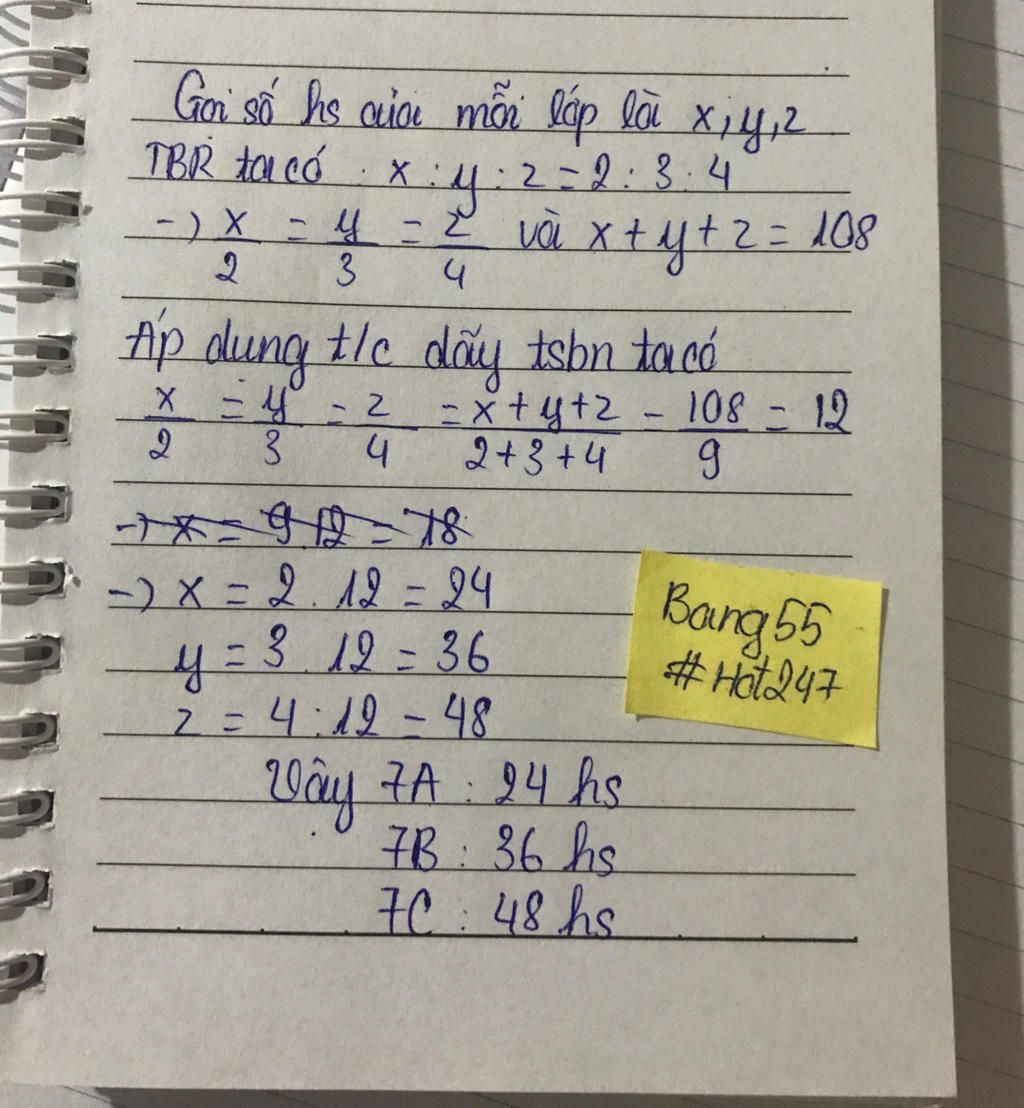 Gọi số hs của mỗi lớp là x, y, z
TBR ta có : x : y : z = 2 : 3 : 4
-) x/2 = y/3 = z/4 và x + y + z = 108
Áp dụng t/c dãy tsbn ta có
x/2 = y/3 = z/4 = x + y + z/2 + 3 + 4 = 108/9 = 12
-) x = 9.12 = 18
-) x = 2 . 12 = 24
y = 3 . 12 = 36
z = 4 . 12 = 48
Vậy 7A : 24 hs
7B : 36 hs
7C : 48 hs
Bang55
#Hot247